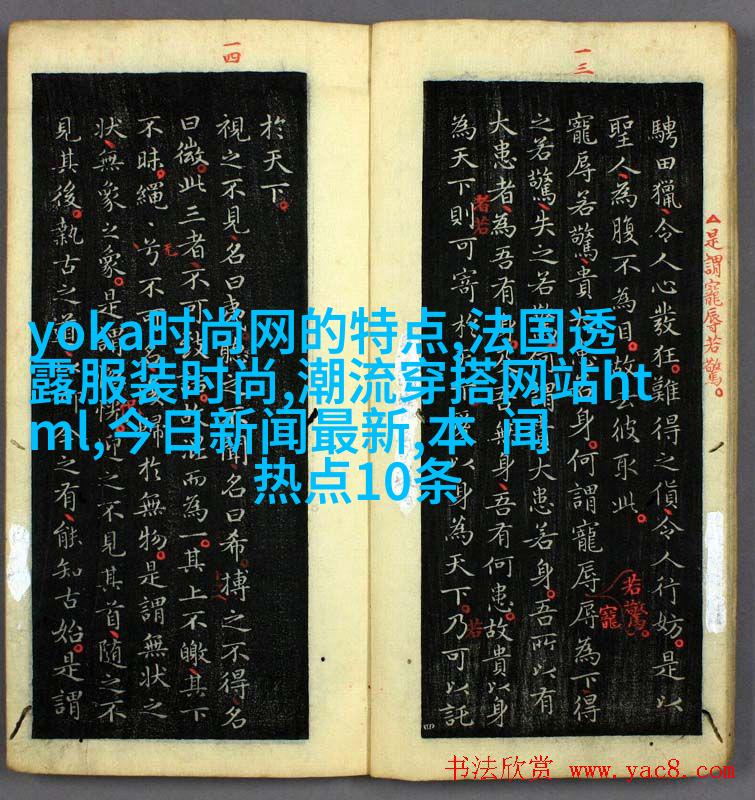 一三
騁田獵令人心發狂難得之貨令人行妨是以
聖人為腹不為目故去彼取此
寵辱若驚貴身何謂寵辱辱為下得
之若驚失之若驚何謂大患若身吾所以有
大患者為吾有身吾無身吾有何患故貴以身
為天下則可寄於以身為天下乃可以託
是謂寵辱若驚
者若
若驚
寵
若
一四
於天下
視之不見名曰夷聽之不聞名曰希搏之不得名
曰微此三者不可致而為一其上不皦其下
不昧繩〻兮不可名歸於無物是謂無狀之
狀無象之象是謂迎之不見其首隨之不
見其後執古之道今之有能知古始是謂
yoka时尚网的特点,法国透
露服装时尚,潮流穿搭网站ht
ml,今日新闻最新,本 闻
热点10条
书法欣赏 www.yac8.com